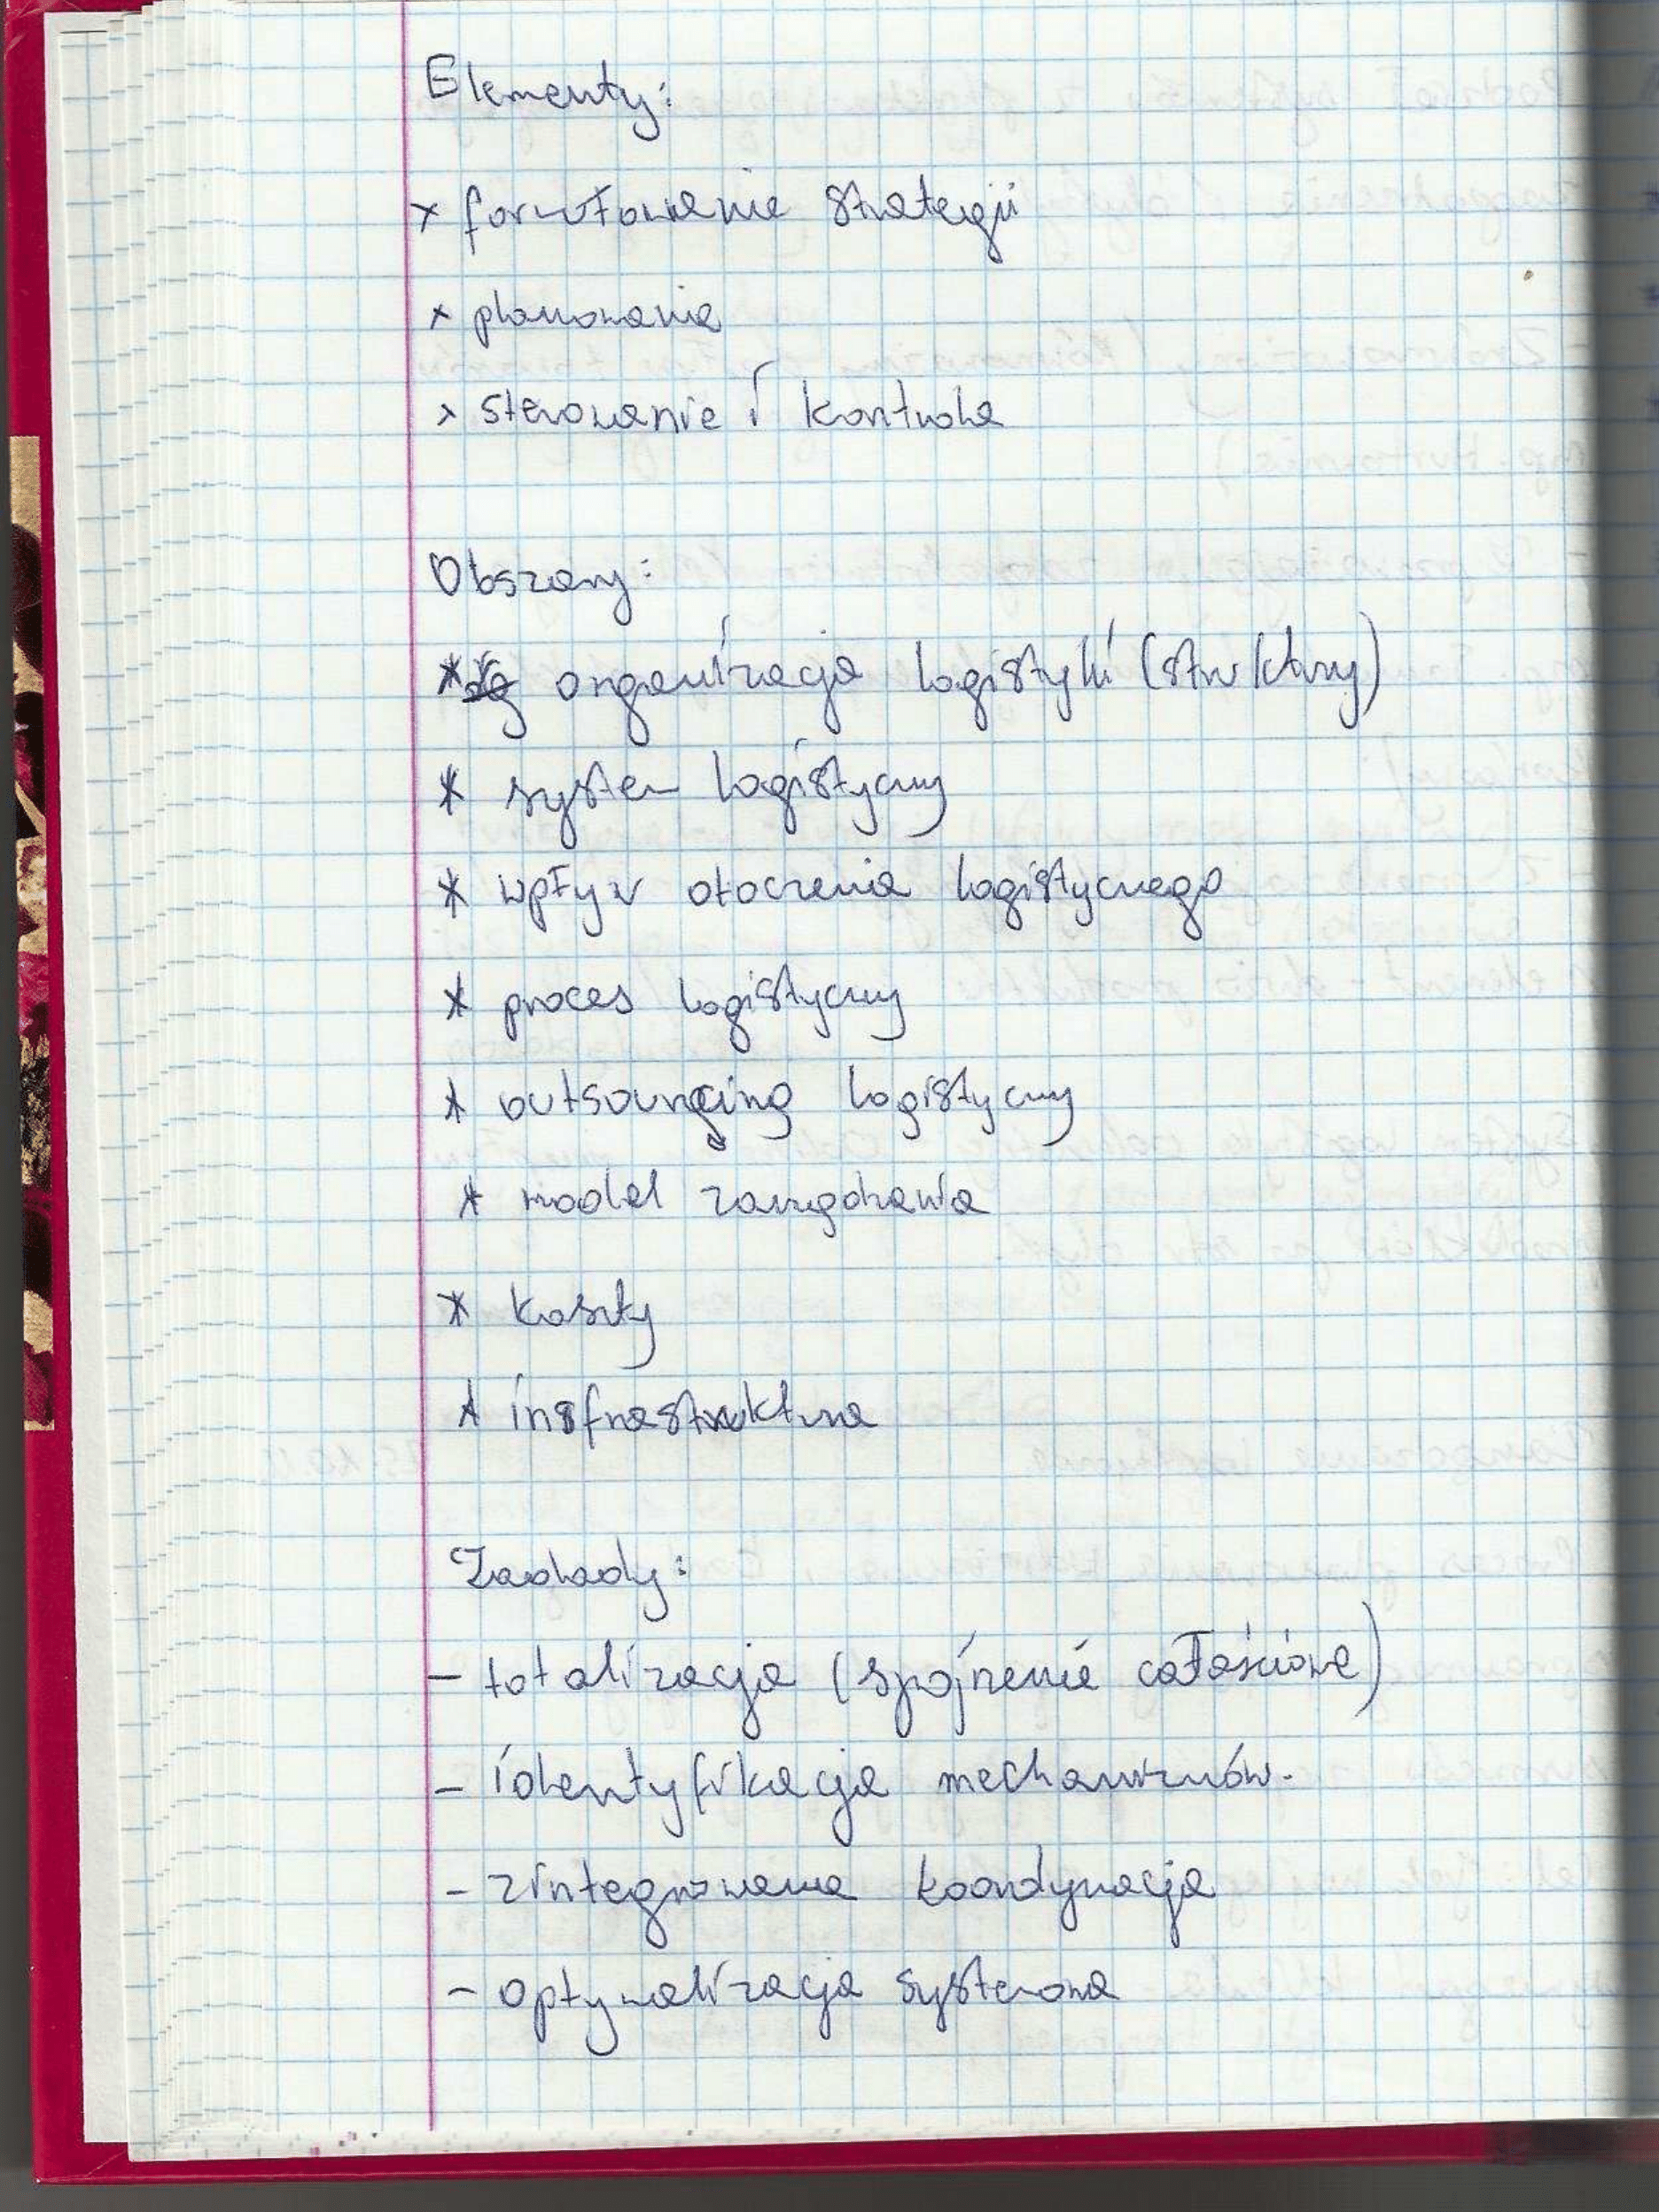 Elementy:
x formułowanie strategii
x planowanie
x sterowanie i kontrola
Obszary:
* organizacja logistyki (struktury)
* system logistyczny
* wpływ otoczenia logistycznego
* proces logistyczny
* outsourcing logistyczny
* model zarządzania
* koszty
* insfrastruktura
Zasady:
- totalizacja (spojrzenie całościowe)
- identyfikacja mechanizmów.
- zintegrowana koordynacja
- optymalizacja systemowa